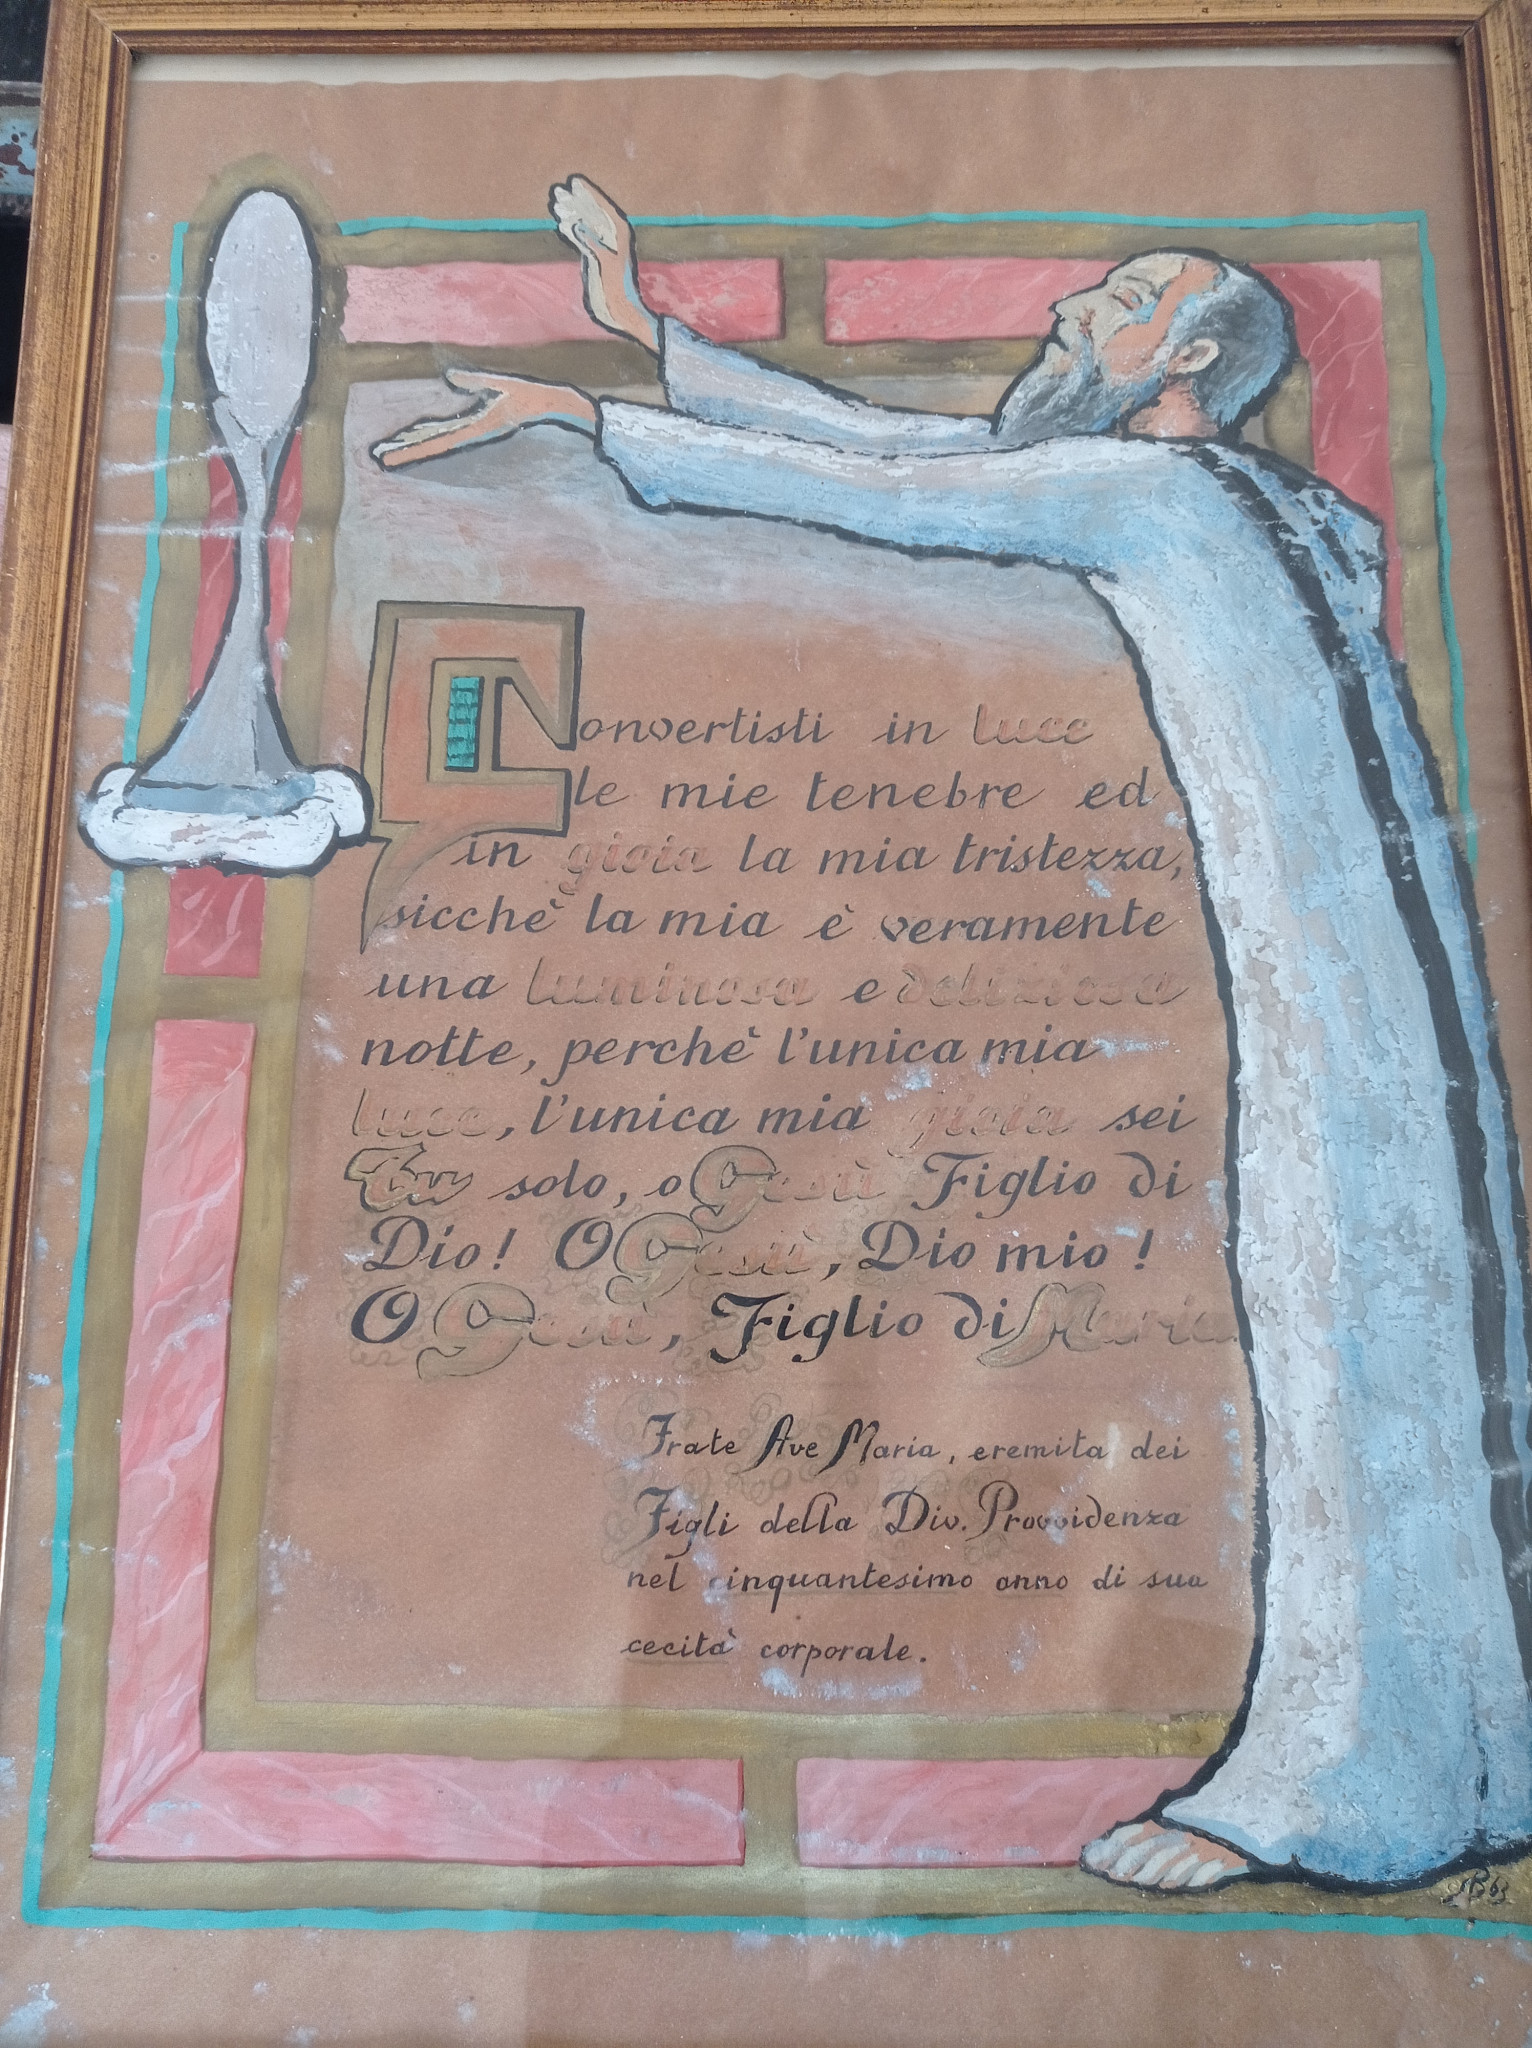 Convertisti in luce
le mie tenebre ed
in gioia la mia tristezza,
sicchè la mia è veramente
una luminosa e deliziosa
notte, perchè l'unica mia
luce, l'unica mia gioia sei
Tu solo, o Gesù Figlio di
Dio! O Gesù, Dio mio!
O Gesù, Figlio di Maria
Frate Ave Maria, eremita dei
Figli della Div. Provvidenza
nel cinquantesimo anno di sua
cecità corporale.